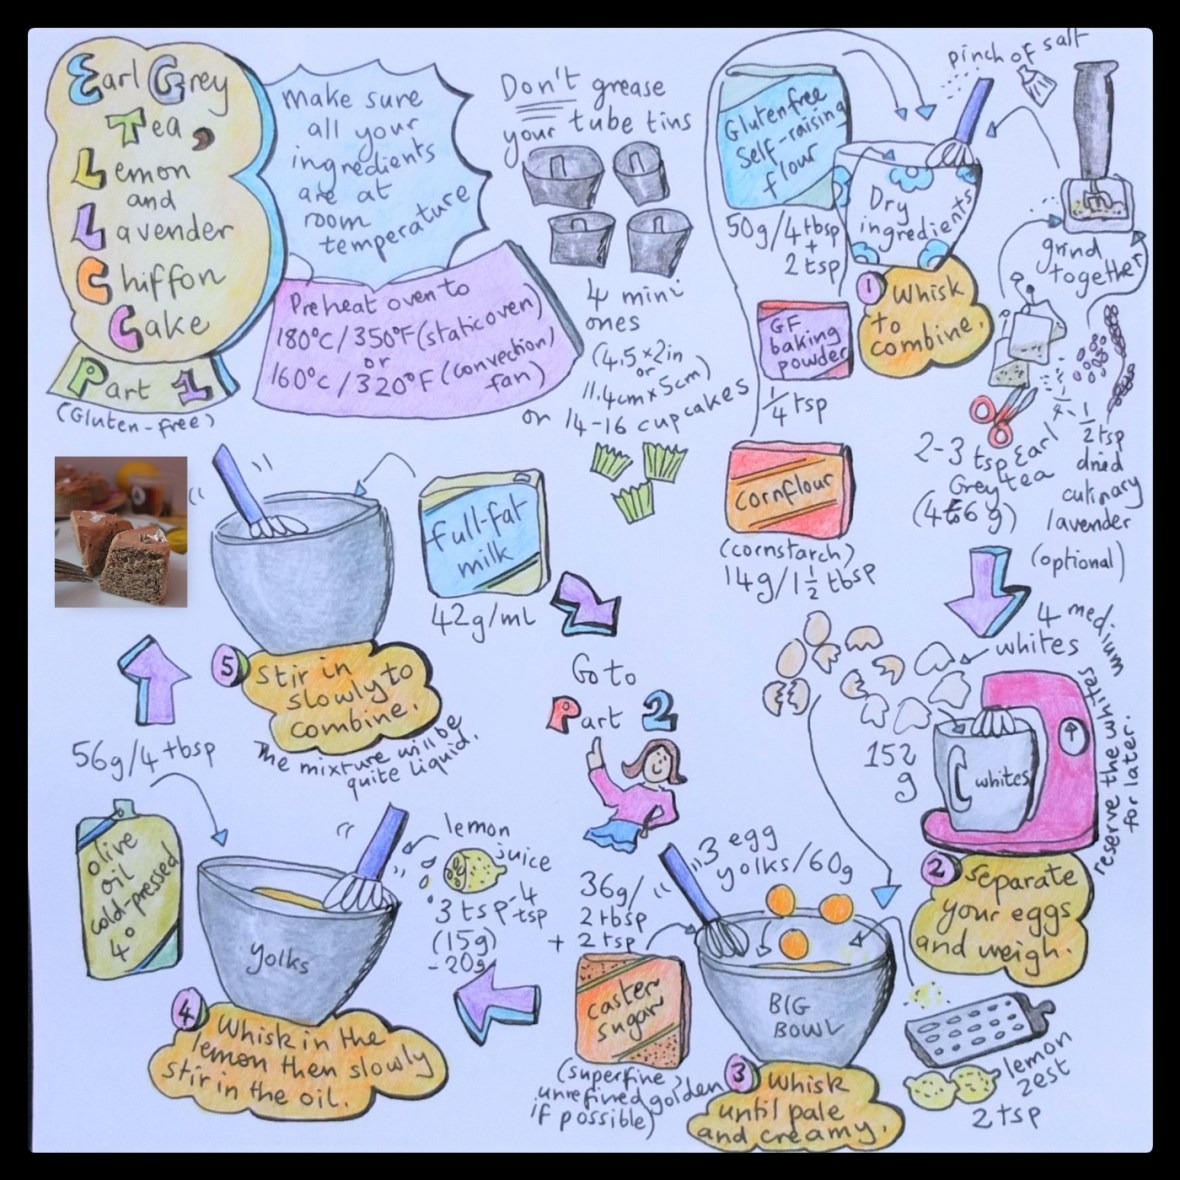 Earl Grey
Tea,
Lemon
and
Lavender
Chiffon
Cake
Part 1
(Gluten-free)
Make sure
all your
ingredients
are at
room
temperature
Preheat oven to
180°C/350°F (static oven)
or
160°C/320°F (convection/
fan)
Don't grease
your tube tins
4 mini
ones
(4.5×2in
or
11.4cm×5cm)
or 14-16 cupcakes
Gluten free
Self-raising
flour
50g/4tbsp
+
2 tsp
GF
baking
powder
1/4 tsp
cornflour
(cornstarch)
14g/1 1/2 tbsp
pinch of salt
Dry
ingredients
1 Whisk
to
combine.
grind
together
2-3 tsp Earl
Grey tea
(4to6g)
1/2 tsp
dried
culinary
lavender
(optional)
4 medium
whites
152
g
whites
reserve the whites
for later.
2 Separate
your eggs
and weigh.
3 egg
yolks/60g
36g/
2 tbsp
+ 2 tsp
caster
sugar
(superfine,
unrefined golden
if possible)
BIG
BOWL
lemon
zest
2 tsp
3 Whisk
until pale
and creamy.
lemon
juice
3 tsp-4
tsp
(15g)
-20g
56g/4 tbsp
olive
oil
cold-pressed
4°
yolks
4 Whisk in the
lemon then slowly
stir in the oil.
full-fat
milk
42g/ml
5 Stir in
slowly to
combine.
The mixture will be
quite liquid.
Go to
Part 2